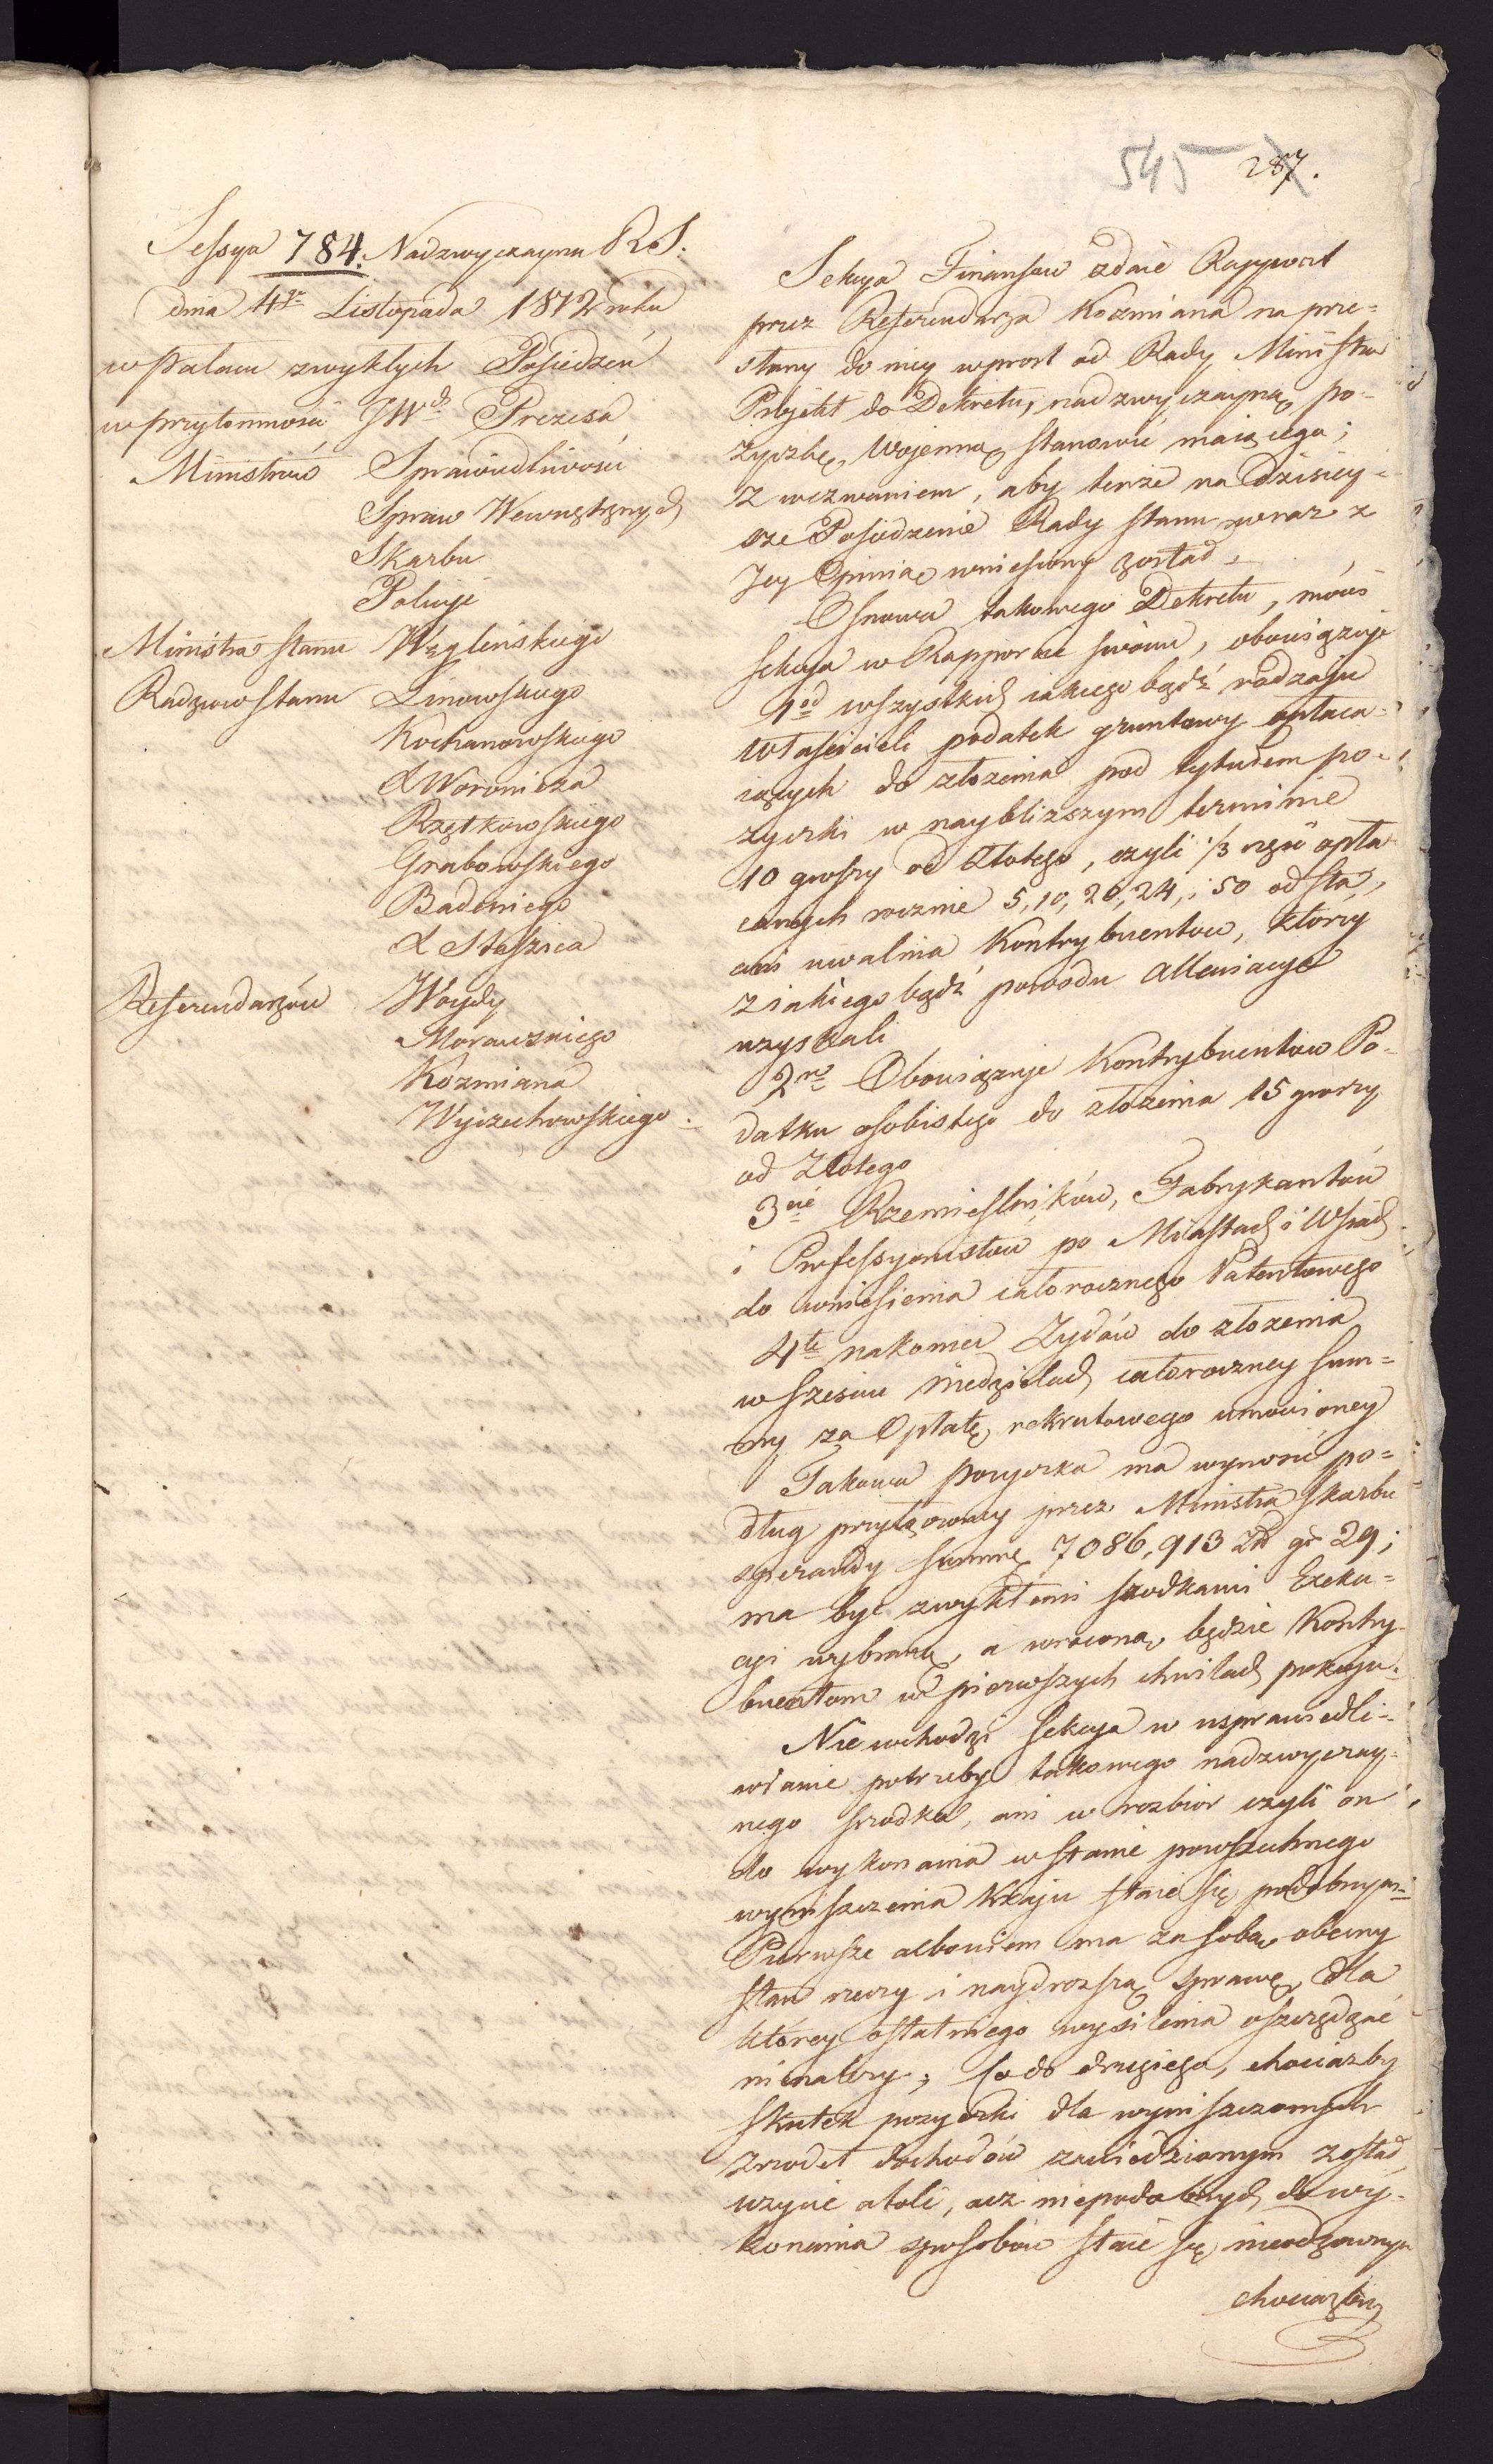 545 287.
Sessya 784. Nadzwyczayna R.S.
dnia 4go Listopada 1812 roku
w Pałacu zwykłych Posiedzeń
w przytomności JWch Prezesa
Ministrów Sprawiedliwości
Spraw Wewnętrznych
Skarbu
Policyi
Ministra Stanu Węglińskiego
Radzców Stanu Linowskiego
Kochanowskiego
X Woronicza
Rzętkowskiego
Grabowskiego
Badeniego
X Staszica
Referendarzów Woydy
Morawskiego
Kozmiana
Wyczechowskiego
Sekcya Finansów zdaie Rapport
przez Referendarza Kozmiana na prze-
słany do niey wprost od Rady Ministrów
Projekt do Dekretu, nadzwyczayną po-
życzkę Wojenną stanowić maiącego;
z wezwaniem, aby tenże na dzisiey-
sze Posiedzenie Rady Stanu wraz z
Jey Opinią wniesiony został.
Osnowa takowego Dekretu, mówi
Sekcya w Rapporcie swoim, obowiązuje
1od wszystkich iakiego bądź rodzaju
Właścicieli podatek gruntowy opłaca-
iących do złożenia pod tytułem po-
życzki w naybliższym terminie
10 groszy od Złotego, czyli 1/3 część opła
canych rocznie 5, 10, 20, 24, i 50 od sta,
ani uwalnia Kontrybuentów, którzy
z iakiego bądź powodu Allewiacye
uzyskali
2re Obowiązuje Kontrybuentów Po-
datku osobistego do złożenia 15 groszy
od Złotego
3cie Rzemieślników, Fabrykantów
i Professyonistów po Miastach i Wsiach
do wniesienia całorocznego Patentowego
4te nakoniec Żydów do złożenia
w sześciu niedzielach całoroczney Sum-
my za Opłatę rekrutowego umowioney
Takowa pożyczka ma wynosić po-
dług przyłączoney przez Ministra Skarbu
sperandy Summę 7086,913 Zł gr 29;
ma być zwykłemi środkami Exeku-
cyi wybraną, a wrócona będzie Kontry-
buentom w pierwszych chwilach pokoju.
Nie wchodzi Sekcya w usprawiedli-
wianie potrzeby takowego nadzwyczay-
nego srodka, ani w rozbior czyli on
do wykonania w stanie powszechnego
wyniszczenia Kraju staie się podobnym.
Pierwsze albowiem ma za sobą obecny
stan rzeczy i naydroższą sprawę, dla
którey ostatniego wysilenia oszczędzać
nienależy; Co do drugiego, chociażby
skutek pożyczki dla wyniszczonych
zrodeł dochodów zawiedzionym został,
użycie atoli, acz niepodobnych do wy-
konania sposobów staie się nieodzownym
chociażby